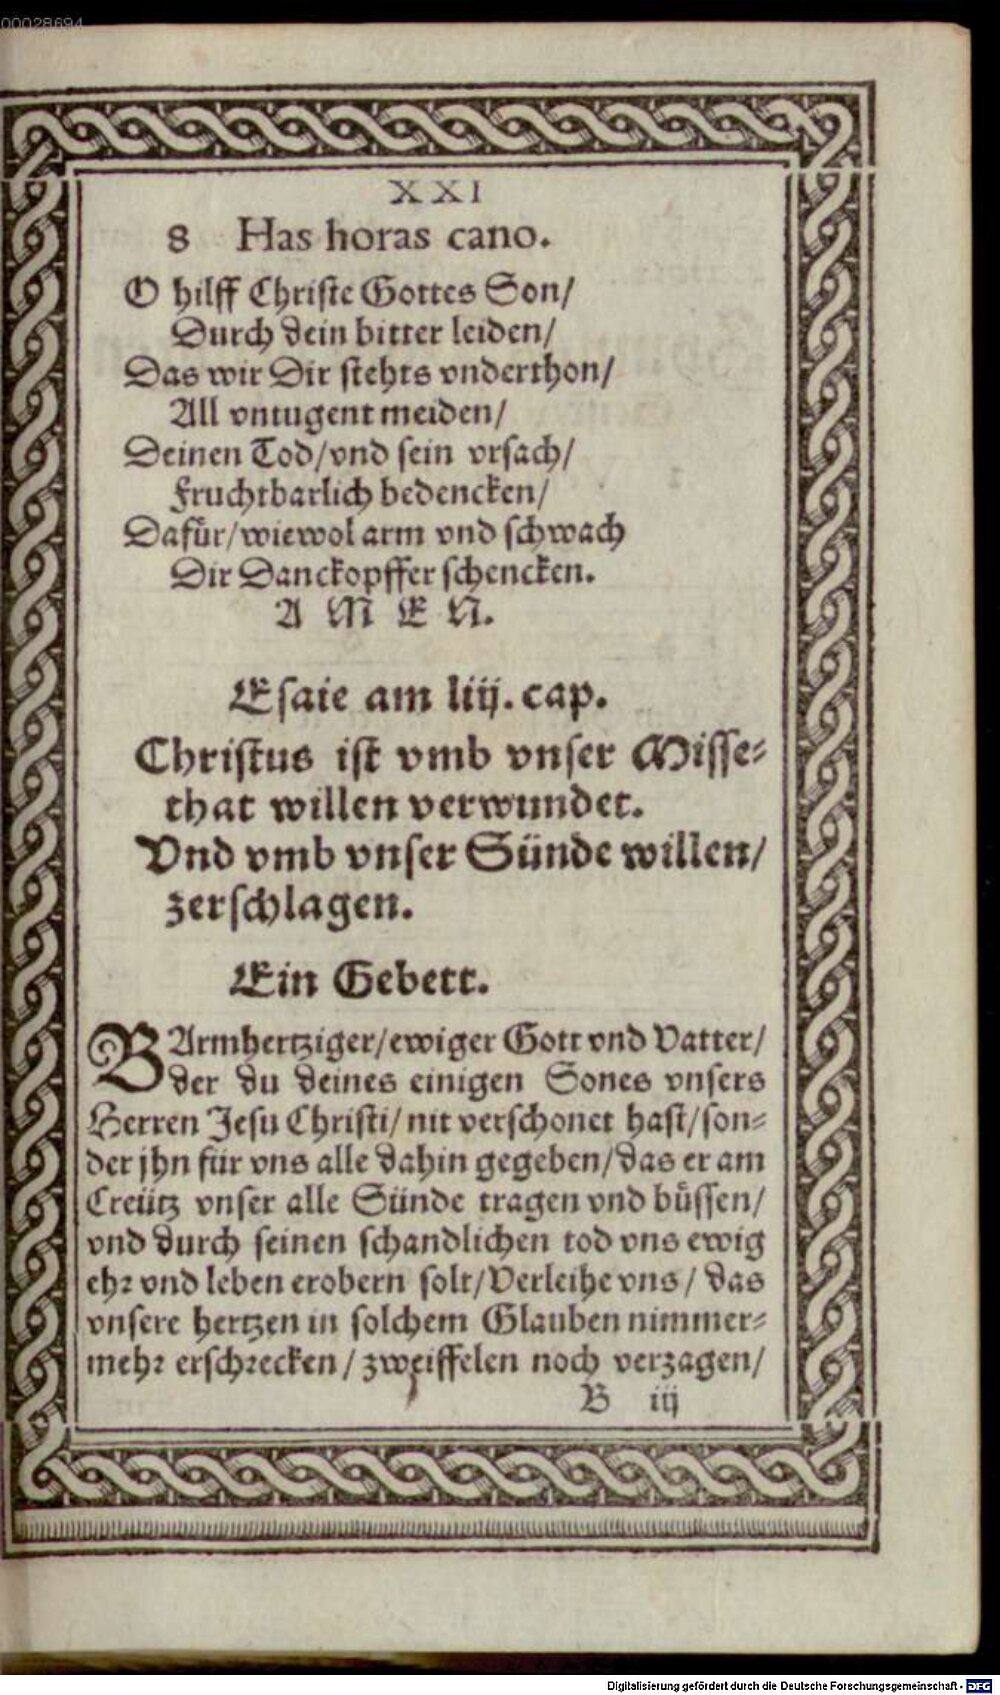 00028694
XXI
8 Has horas cano.
O hilff Christe Gottes Son/
Durch dein bitter leiden/
Das wir Dir stehts vnderthon/
All vntugent meiden/
Deinen Tod/vnd sein vrsach/
Fruchtbarlich bedencken/
Dafür/wiewol arm vnd schwach
Dir Danckopffer schencken.
A M E N.
Esaie am liij. cap.
Christus ist vmb vnser Misse-
that willen verwundet.
Vnd vmb vnser Sünde willen/
zerschlagen.
Ein Gebett.
BArmhertziger/ewiger Gott vnd Vatter/
der du deines einigen Sones vnsers
Herren Jesu Christi/nit verschonet hast/son-
der jhn für vns alle dahin gegeben/das er am
Creütz vnser alle Sünde tragen vnd büssen/
vnd durch seinen schandlichen tod vns ewig
ehr vnd leben erobern solt/Verleihe vns/das
vnsere hertzen in solchem Glauben nimmer-
mehr erschrecken/zweiffelen noch verzagen/
B iij
Digitalisierung gefördert durch die Deutsche Forschungsgemeinschaft - DFG